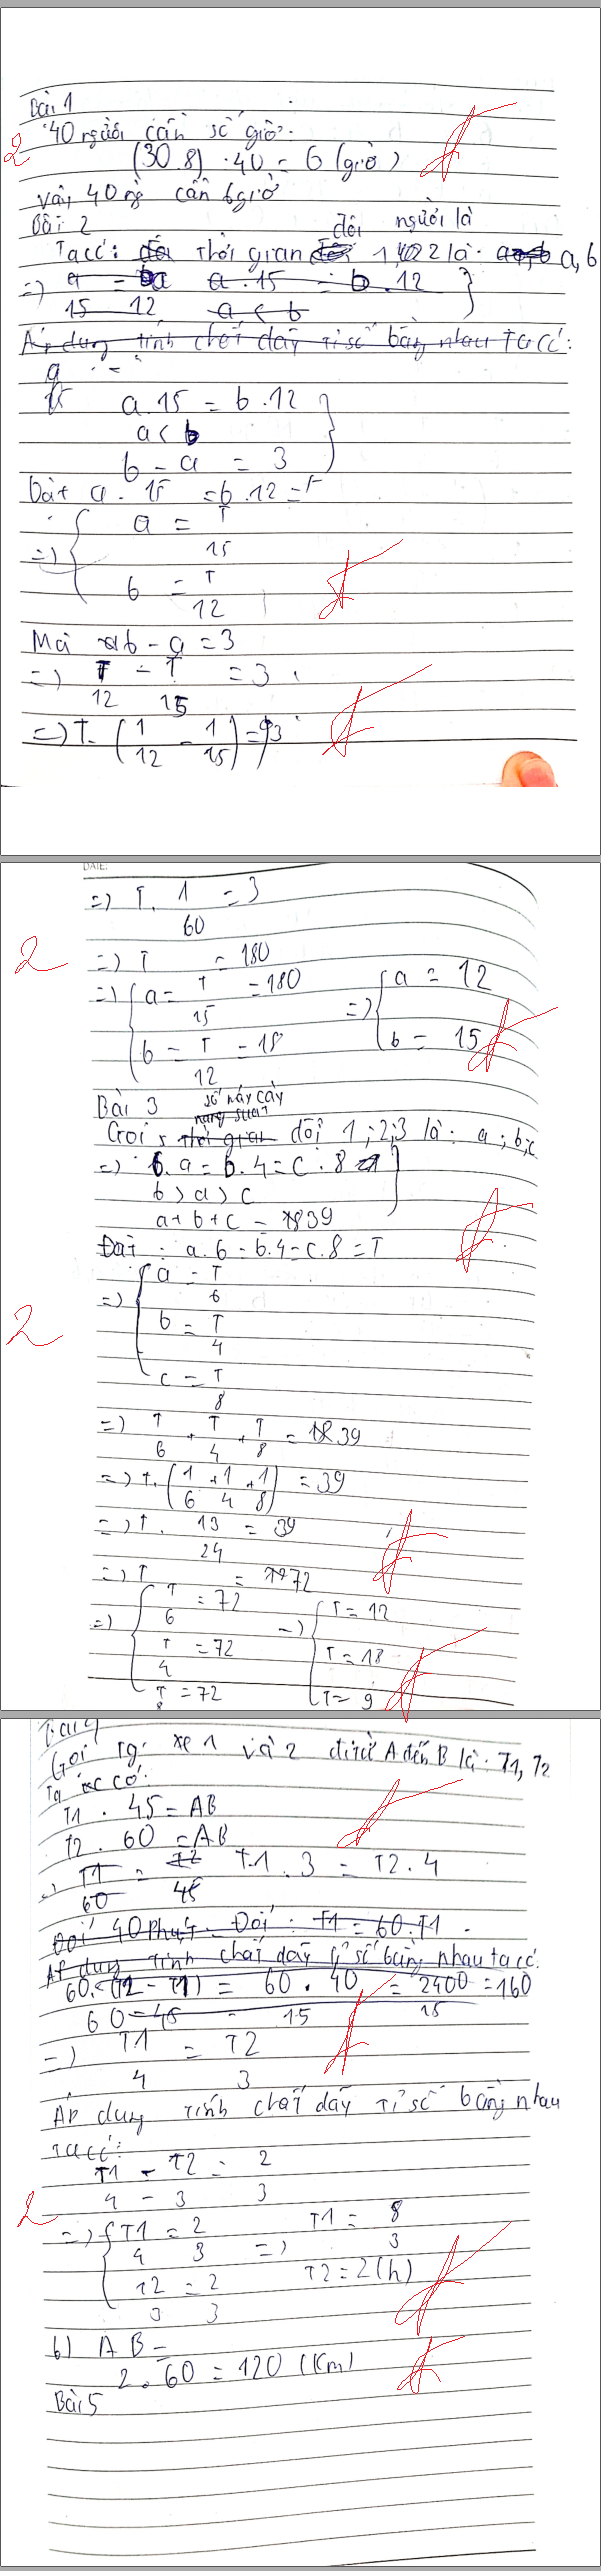 Bài 1
40 người cần số giờ:
2
(30.8) . 40 = 6 (giờ)
Vậy 40 ng cần 6 giờ
Bài 2
đội người là
Ta có: Thời gian 1 2 là: a, b
=> a = a . 15 = b . 12
15 12 a < b
Áp dụng tính chất dãy tỉ số bằng nhau Ta có:
a
a . 15 = b . 12
a < b
b - a = 3
Đặt a . 15 = b . 12 = T
a = T
15
=>
b = T
12
Mà b - a = 3
=> T - T = 3
12 15
=> T . (1 - 1) = 3
12 15
DATE:
=> T . 1 = 3
60
2
=> T = 180
=> a = T = 180 => a = 12
15
b = T = 18 b = 15
12
Bài 3
số máy cày
năng suất
Gọi thời gian đội 1 ; 2 ; 3 là : a ; b ; c
=> 6 . a = b . 4 = c . 8
b > a > c
a + b + c = 39
Đặt : a . 6 = b . 4 = c . 8 = T
a = T
=> 6
b = T
2
4
c = T
8
=> T + T + T = 39
6 4 8
=> T . (1 + 1 + 1) = 39
6 4 8
=> T . 13 = 39
24
=> T = 72
T = 72 T = 12
6
=> T = 72 => T = 18
4
T = 72 T = 9
8
Bài 4
Gọi Tg xe 1 và 2 đi từ A đến B là: T1, T2
Ta có:
T1 . 45 = AB
T2 . 60 = AB
=> T1 = T2 T1 . 3 = T2 . 4
60 45
Đổi 40 Phút. Đổi : T1 = 60 . T1
Áp dụng tính chất dãy tỉ số bằng nhau ta có:
60 . (T2 - T1) = 60 . 40 = 2400 = 160
60 - 45 15 15
=> T1 = T2
4 3
Áp dụng tính chất dãy tỉ số bằng nhau
Ta có:
T1 - T2 = 2
4 - 3 3
2
=> T1 = 2 T1 = 8
4 3 => 3
T2 = 2 T2 = 2 (h)
3 3
b) AB =
2 . 60 = 120 (Km)
Bài 5